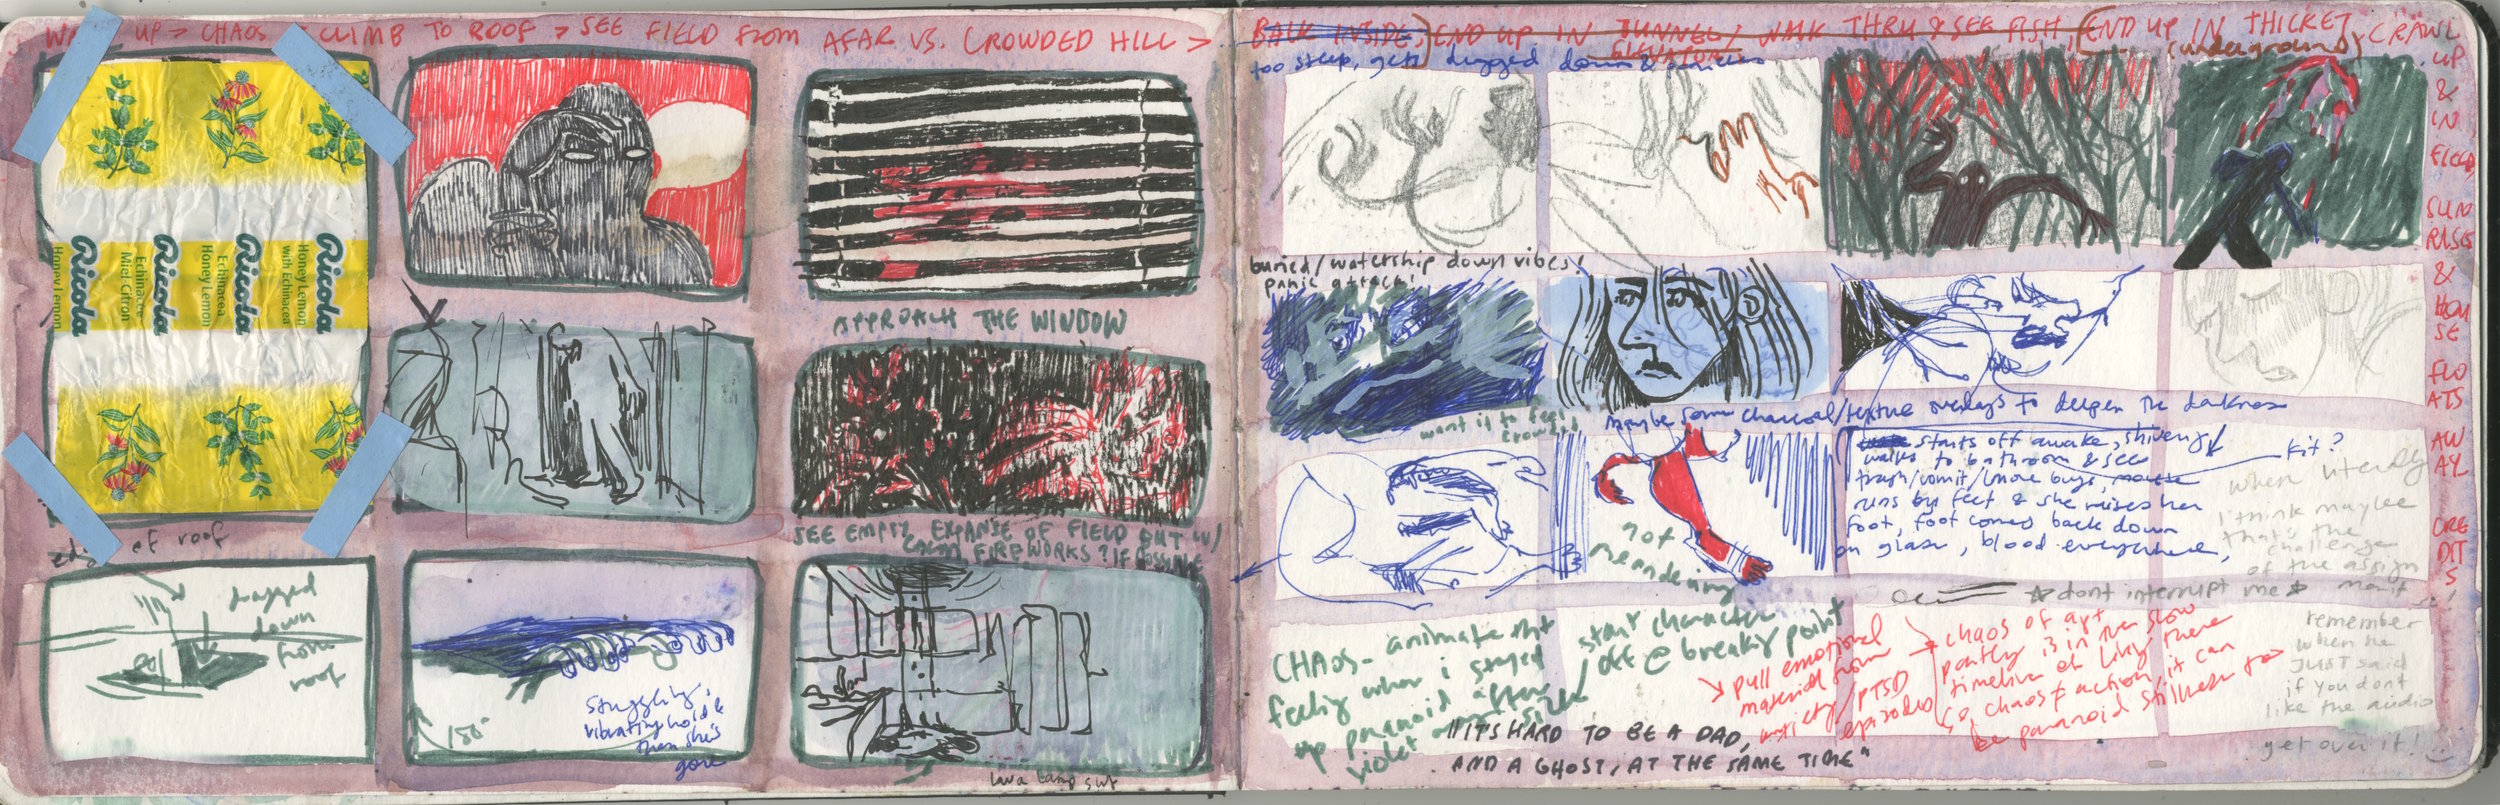 UP > CHAOS CLIMB TO ROOF > SEE FIELD FROM AFAR VS. CROWDED HILL >
BACK INSIDE, END UP IN TUNNEL / WALK THRU & SEE FISH, END UP IN THICKET, CRAWL
ELEVATOR
(underground)
UP
&
IN
FIELD
SUN
RISES
&
HOU
SE
FLO
ATS
AW
AY
CRE
DIT
S
too steep, gets dragged down &
Ricola
Honey Lemon
with Echinacea
Ricola
Echinacea
Honey Lemon
Ricola
Echinacea
Miel Citron
Ricola
Honey Lemon
APPROACH THE WINDOW
SEE EMPTY EXPANSE OF FIELD BUT W/
FIREWORKS? IF POSSIBLE
edge of roof
dragged
down
from
roof
180°
struggling,
vibrating hold &
then she's
gone
lava lamp
buried/watership down vibes!
panic attack!
want it to feel
crowded
maybe some charcoal/texture overlays to deepen the darkness
starts off awake, shivery
walks to bathroom & sees
trash/vomit/more bugs, mouse
runs by feet & she raises her
foot, foot comes back down
on glass, blood everywhere,
Kit?
when literally
I think maybe
that's the
challenge
of the assign
ment
not
meandering
dont interrupt me
CHAOS - animate that
feeling when i stayed
up paranoid after
violet
start character
off @ breaking point
pull emotional
material from
anxiety/PTSD
episodes
chaos of apt
partly is in the slow
timeline of living there
so, chaos ≠ action, it can
be paranoid stillness too
remember
when he
JUST said
if you dont
like the audio
get over it!
"IT'S HARD TO BE A DAD,
AND A GHOST, AT THE SAME TIME"